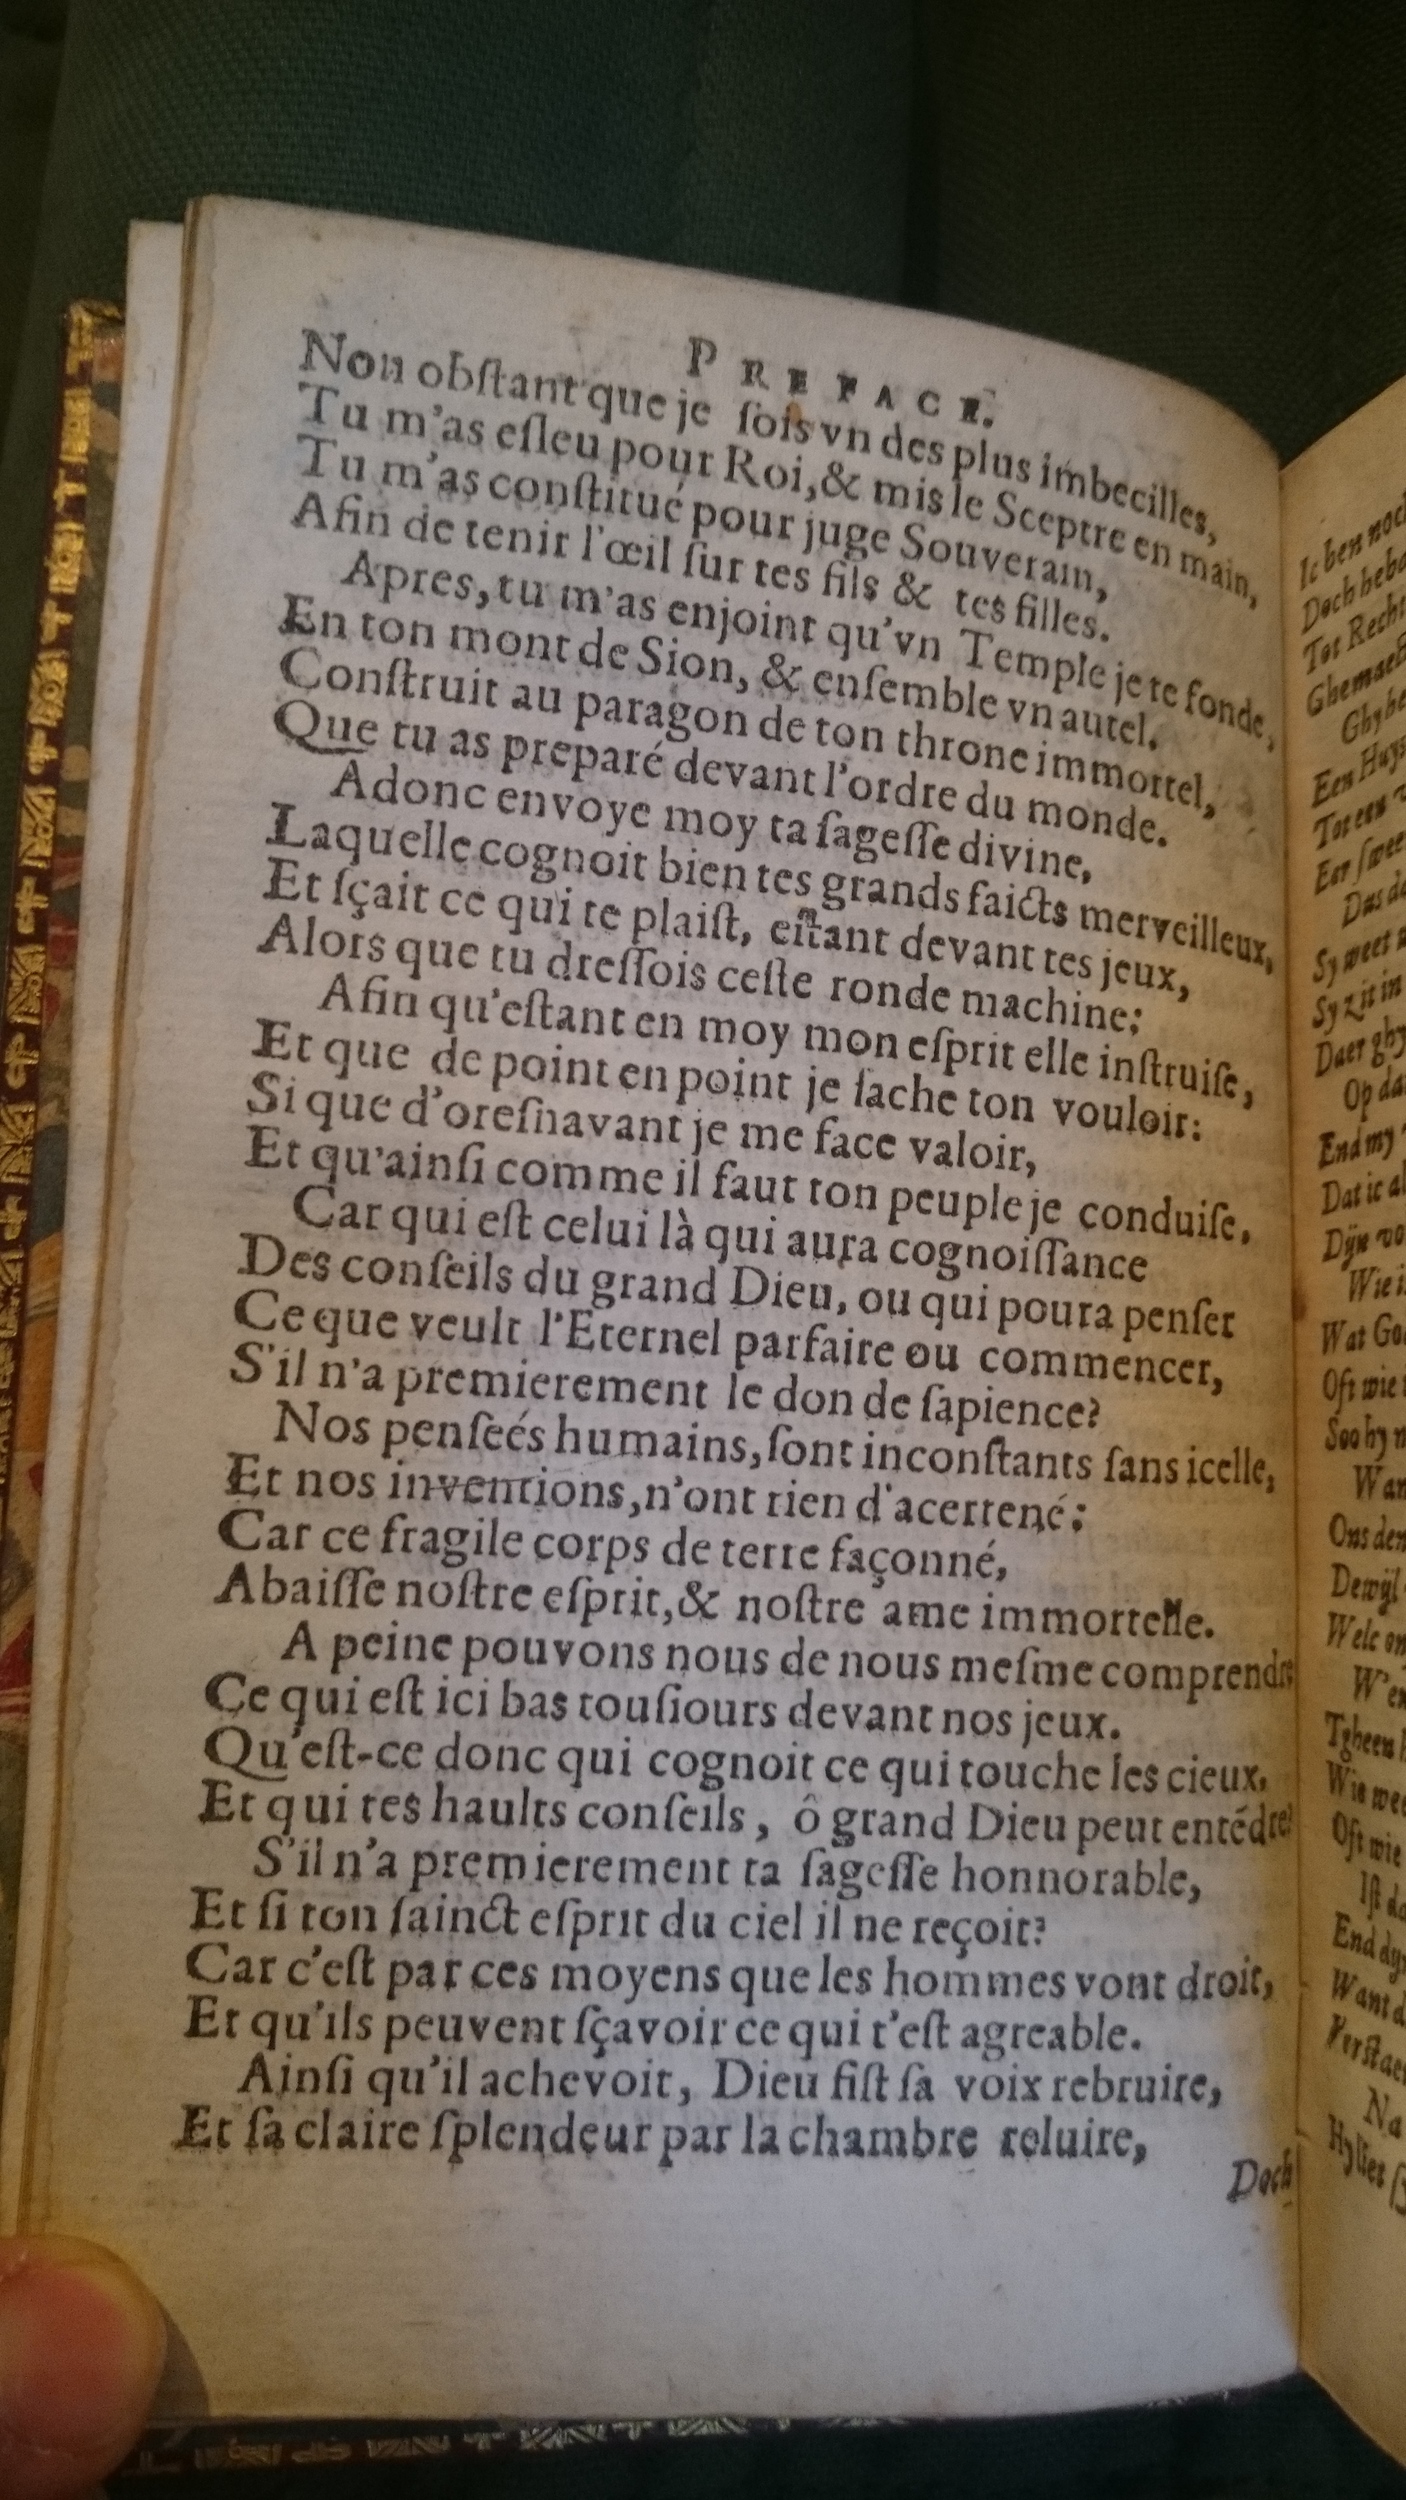 PREFACE.
Non obſtant que je ſois vn des plus imbecilles,
Tu m'as eſleu pour Roi, & mis le Sceptre en main,
Tu m'as conſtitué pour juge Souverain,
Afin de tenir l'œil ſur tes fils & tes filles.
Apres, tu m'as enjoint qu'vn Temple je te fonde,
En ton mont de Sion, & enſemble vn autel.
Conſtruit au paragon de ton throne immortel,
Que tu as preparé devant l'ordre du monde.
Adonc envoye moy ta ſageſſe divine,
Laquelle cognoit bien tes grands faicts merveilleux,
Et ſçait ce qui te plaiſt, eſtant devant tes jeux,
Alors que tu dreſſois ceſte ronde machine;
Afin qu'eſtant en moy mon eſprit elle inſtruiſe,
Et que de point en point je ſache ton vouloir:
Si que d'oreſnavant je me face valoir,
Et qu'ainſi comme il faut ton peuple je conduiſe.
Car qui eſt celui là qui aura cognoiſſance
Des conſeils du grand Dieu, ou qui poura penſer
Ce que veult l'Eternel parfaire ou commencer,
S'il n'a premierement le don de ſapience?
Nos penſeés humains, ſont inconſtants ſans icelle,
Et nos inventions, n'ont rien d'acertené;
Car ce fragile corps de terre façonné,
Abaiſſe noſtre eſprit, & noſtre ame immortelle.
A peine pouvons nous de nous meſme comprendre
Ce qui eſt ici bas touſiours devant nos jeux.
Qu'eſt-ce donc qui cognoit ce qui touche les cieux,
Et qui tes haults conſeils, ô grand Dieu peut entédre?
S'il n'a premierement ta ſageſſe honnorable,
Et ſi ton ſainct eſprit du ciel il ne reçoit?
Car c'eſt par ces moyens que les hommes vont droit,
Et qu'ils peuvent ſçavoir ce qui t'eſt agreable.
Ainſi qu'il achevoit, Dieu fiſt ſa voix rebruire,
Et ſa claire ſplendeur par la chambre reluire,
Doch
Ic ben
Doch
Tot
Een
Tot een
Eer
Sy weet
Sy zit in
Daer ghy
Op
End my
Dat ic
Dijn
Wie
Wat
Oft wie
Soo hy
Ons
Dewijl
Welc
Wie
Oft wie